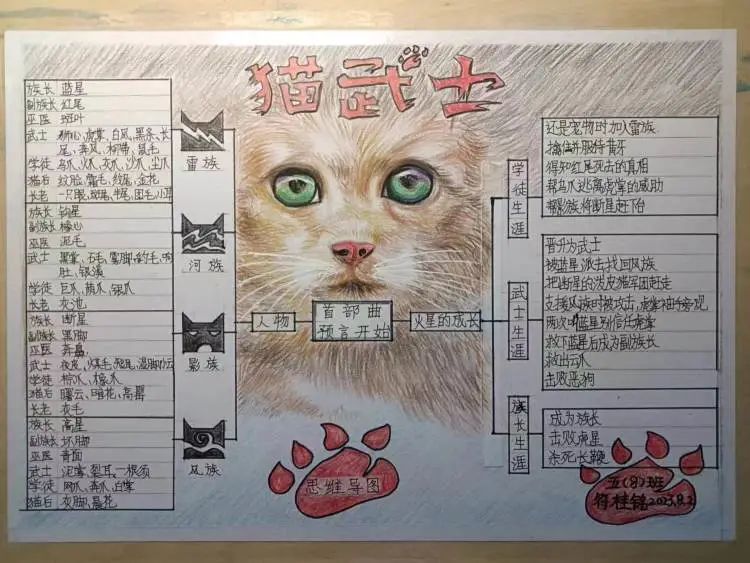 猫武士
族长 蓝星
副族长 红尾
巫医 斑叶
武士 狮心,虎掌,白风,黑条,长
尾,奔风,柳带,鼠毛
学徒 乌爪,火爪,灰爪,沙爪,尘爪
猫后 纹脸,霜毛,纹尾,金花
长老 一只眼,
雷族
族长 钩星
副族长 橡心
巫医 泥毛
武士 黑掌,石毛,
肚,银溪
学徒 巨爪,
长老 灰池
河族
族长 断星
副族长 黑脚
巫医 奔鼻
武士
学徒 棕爪,橡爪
猫后 曙云,暗花,高罂
长老 灰毛
影族
族长 高星
副族长 坏脚
巫医 青面
武士 泥掌,裂耳,一根须
学徒 网爪,奔爪,白掌
猫后 灰脚,晨花
风族
人物
首部曲
预言开始
火星的成长
学徒生涯
还是宠物时加入雷族
擒住并服侍黄牙
得知红尾死去的真相
帮乌爪逃离虎掌的威胁
帮影族将断星赶下台
武士生涯
晋升为武士
被蓝星派去找回风族
把断星的泼皮猫军团赶走
支援风族时被攻击,虎掌袖手旁观
两次叫蓝星别信任虎掌
救下蓝星后成为副族长
救出云爪
击败恶狗
族长生涯
成为族长
击败虎星
杀死长鞭
思维导图
五(8)班
符桂铭2023.8.2